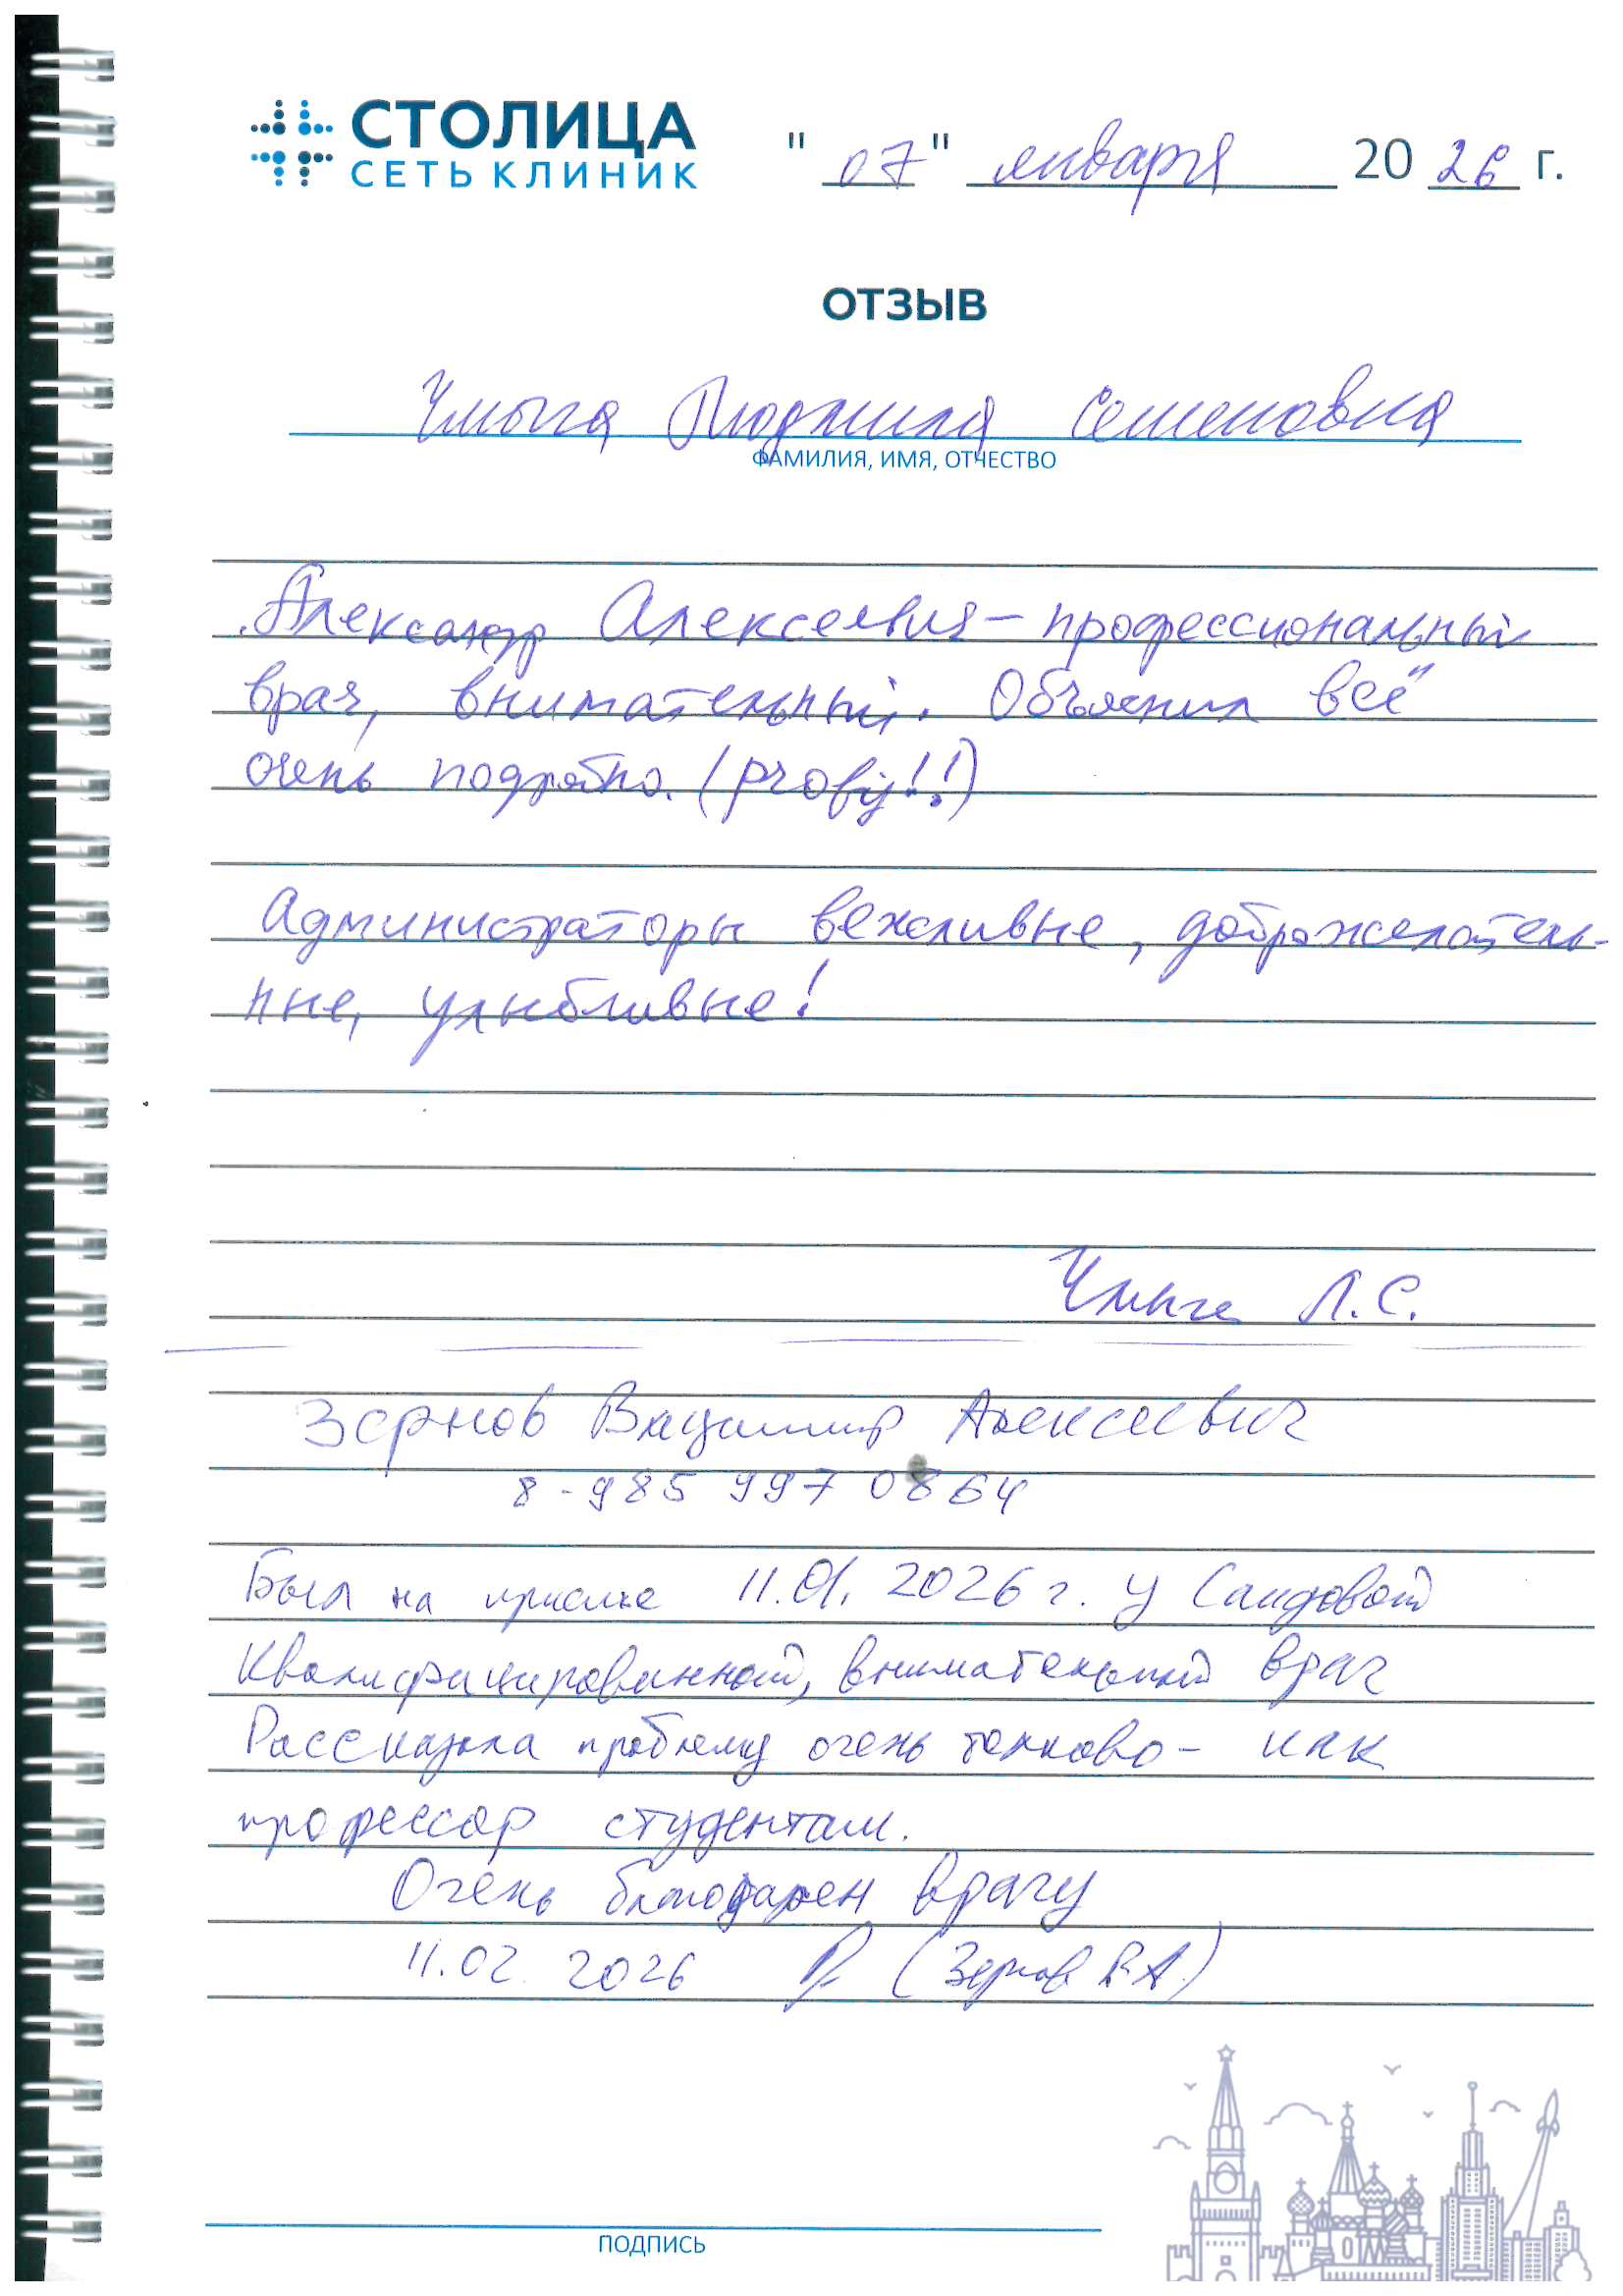 СТОЛИЦА
СЕТЬ КЛИНИК
"07" января 2026 г.
ОТЗЫВ
Людмила Семеновна
ФАМИЛИЯ, ИМЯ, ОТЧЕСТВО
Александр Алексеевич – профессиональный
врач, внимательный. Объяснил всё
очень подробно. (profi!!)
Администраторы вежливые, доброжелатель-
ные, улыбчивые!
Л.С.
Зернов Владимир Алексеевич
8-985 997 0864
Был на приеме 11.01.2026 г. у Саидовой
Квалифицированной, внимательный врач
Рассказала проблему очень толково - как
профессор студентам.
Очень благодарен врачу
11.02.2026 (Зернов В.А.)
ПОДПИСЬ